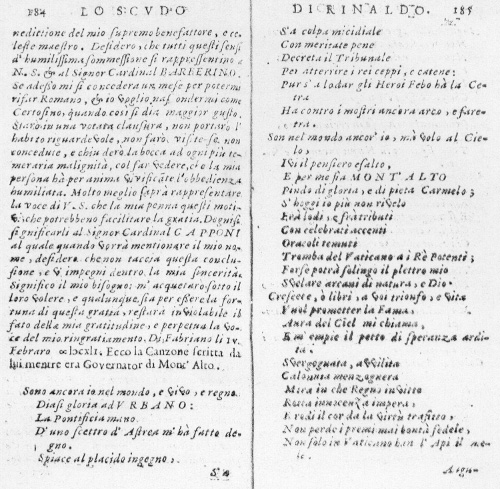 184 LO SCVDO
nedittione del mio supremo benefattore, e ce-
leste maestro. Desidero, che tutti questi sensi
d'humilissima sommessione si rappresentino a
N. S. & al Signor Cardinal BARBERINO.
Se adesso mi si concederà un mese per potermi
vestir Romano, & io voglio nascondermi come
Certosino, quando così si dia maggior gusto.
Starò in una votata clausura, non portarò l'
habito riguardevole, non farò visite, se non
concedute, e chiuderò la bocca ad ogni più te-
meraria malignità, col far vedere, che la mia
persona hà per anima visibile l'obbedienza
humiliata. Molto meglio saprà rappresentare
la voce di V. S. che la mia penna questi moti-
vi che potrebbeno facilitare la gratia. Degnisi
significarli al Signor Cardinal CAPPONI
al quale quando verrà mentionare il mio no-
me, desidero che non taccia questa conclu-
sione, e vi impegni dentro la mia sincerità.
Significo il mio bisogno: m'acquetarò sotto il
loro volere, e qualunque sia per essere la for-
tuna di questa gratia, restarà inviolabile il
fato della mia gratitudine, e perpetua la vo-
ce del mio ringratiamento. Di Fabriano li IV.
Febraro ∞ Iocxli. Ecco la Canzone scritta da
lui mentre era Governator di Mont' Alto.
Sono ancora io nel mondo, e vivo, e regno.
Diasi gloria ad VRBANO:
La Pontificia mano
D'uno scettro d'Astrea m'hà fatto de-
gno.
Spiace al placido ingegno,
S'a
DI RINALDO. 185
S'a colpa micidiale
Con meritate pene
Decreta il Tribunale
Per atterrire i rei ceppi, e catene:
Pur s'a lodar gli Heroi Febo hà la Ce-
tra
Ha contro i mostri ancora arco, e fare-
tra.
Son nel mondo ancor'io, mà volo al Cie-
lo,
Ivi il pensiero esalto,
E per me sia MONT' ALTO
Pindo di gloria, e di pietà Carmelo;
S'hoggi io più non rivelo
Fra lodi, e frà tributi
Con celebrati accenti
Oracoli temuti
Tromba del Vaticano a i Rè Potenti;
Forse potrà solingo il plettro mio
Svelare arcani di natura, e Dio.
Crescete, o libri, a voi trionfo, e vita
Vuol prometter la Fama,
Aura dei Ciel mi chiama,
E m'empie il petto di speranza ardi-
ta.
Svergognata, avvilita
Calonnia menzognera
Mira in che Regno invitto
Retta innocenza impera,
E vedi il cor da la virtù trafitto,
Non perde i premi mai bontà fedele,
Non solo in Vaticano han l'Api il me-
le.